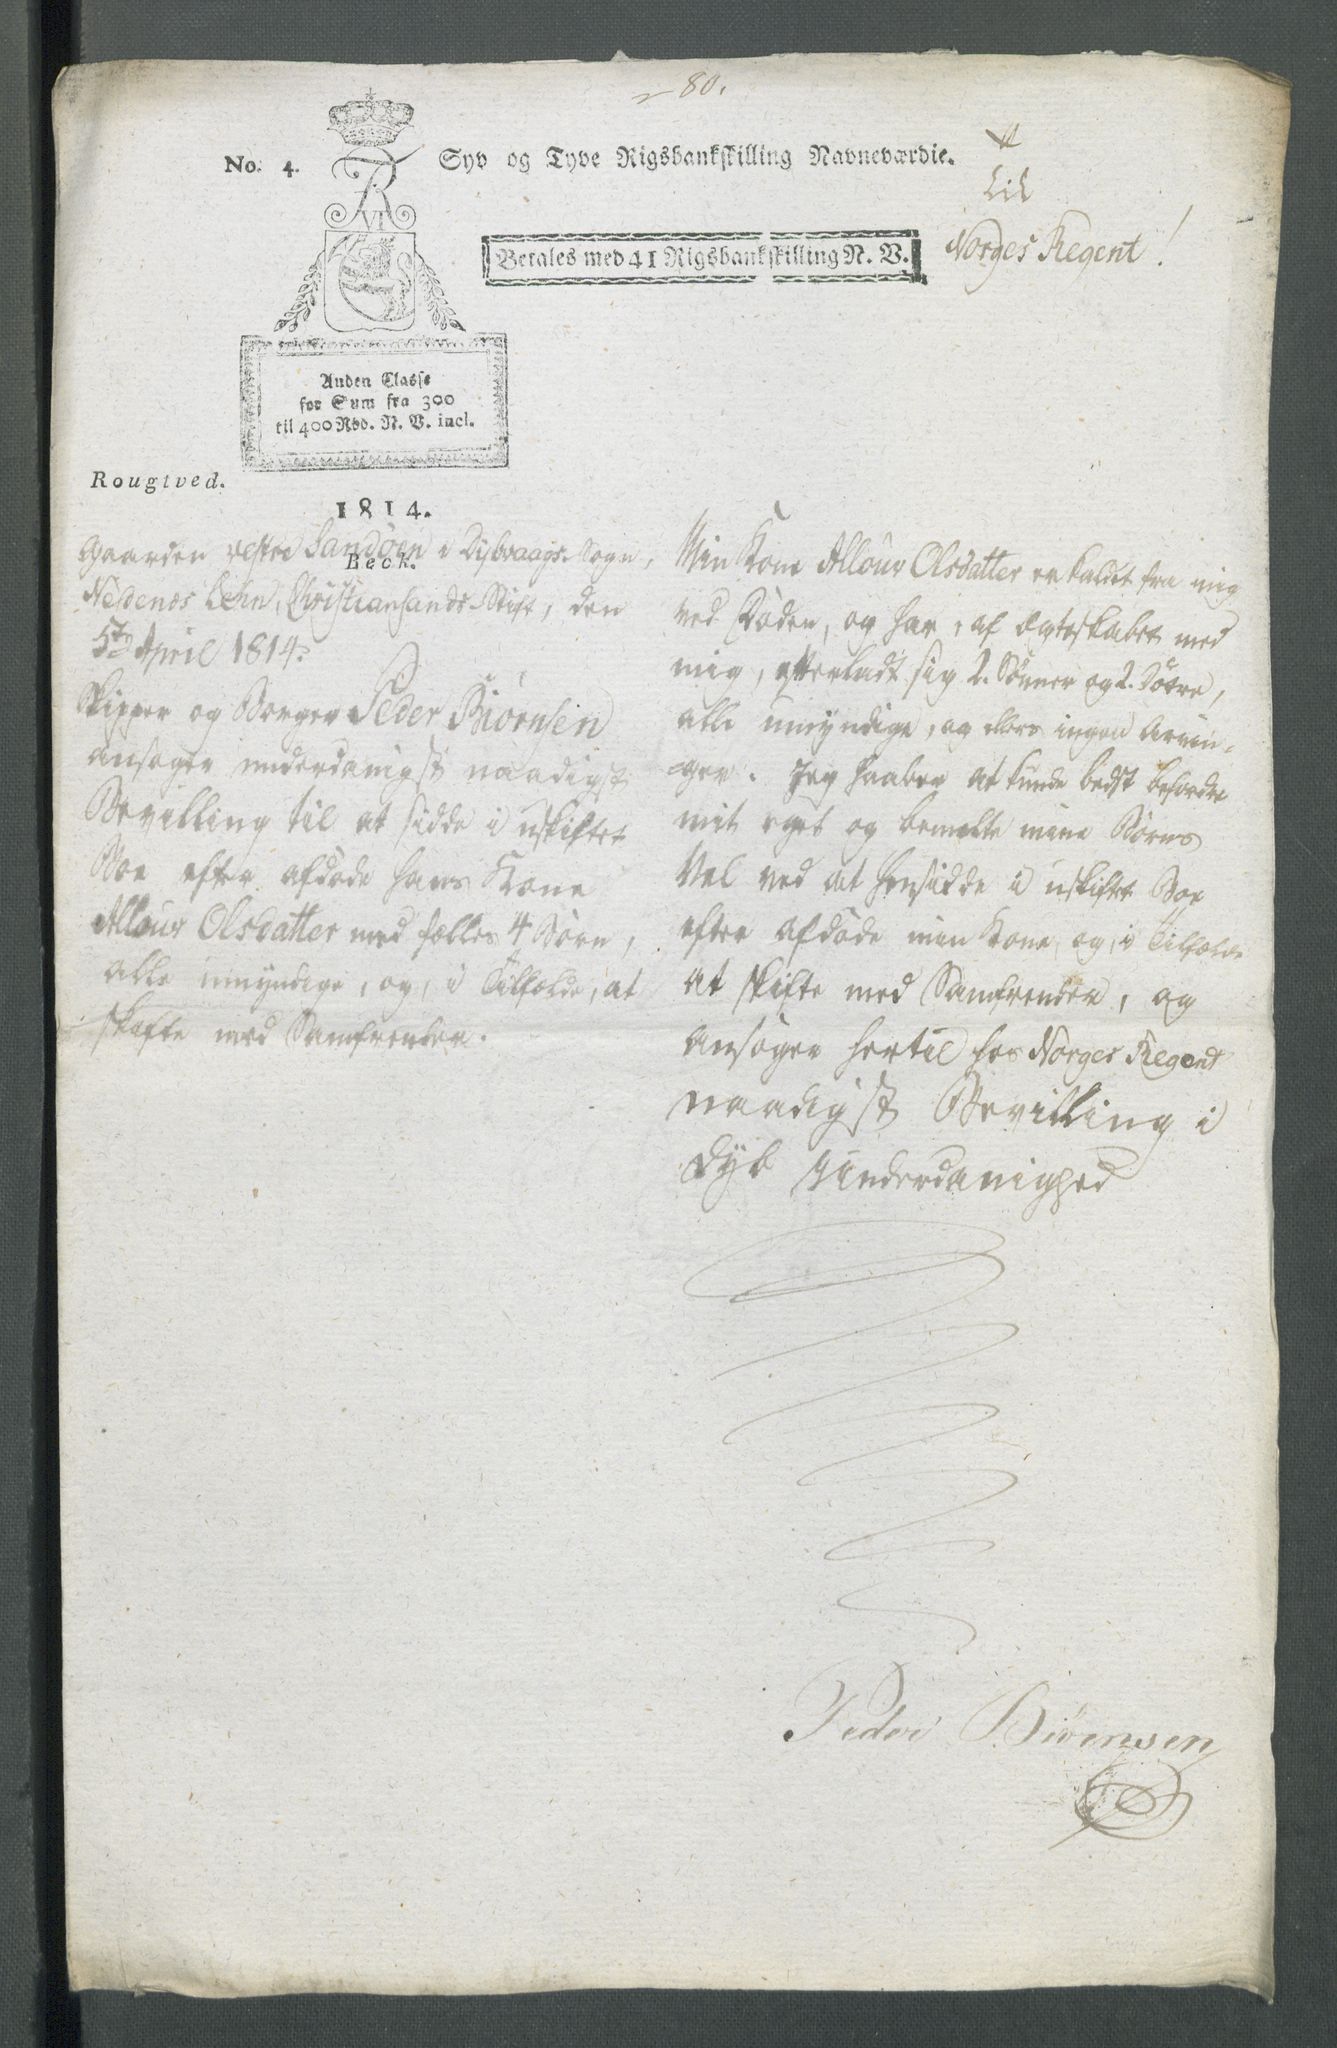 80.
No. 4.
Syv og Tyve Rigsbankskilling Navneværdie.
VI
Betales med 41 Rigsbankskilling N. V.
Til
Norges Regent!
Anden Classe
for Sum fra 300
til 400 Rbd. N. V. incl.
Rougtved.
1814.
Beck.
Gaarden vestre Sandøen i Dijbvaags Sogn,
Nedenes Lehn, Christiansands Stift, den
5te April 1814.
Skipper og Borger Peder Biørnsen
ansøger underdanigst naadigst
Bevilling til at sidde i uskiftet
Boe efter afdøde hans Kone
Allour Olsdatter med fælles 4 Børn,
alle umyndige, og, i Tilfælde, at
skifte med Samfrender.
Min Kone Allour Olsdatter er kaldet fra mig
ved Døden, og har, af Ægteskabet med
mig, efterladt sig 2. Sønner og 2. Døtre,
alle umyndige, og ellers ingen Arvin-
ger. Jeg haaber at kunde bedst befordre
mit eget og bemelte mine Børns
Vel ved at hensidde i uskiftet Boe
efter afdøde min Kone, og, i Tilfælde
at skifte med Samfrender, og
ansøger hertil hos Norges Regent
naadigst Bevilling i
dyb Underdanighed
Peder Biørnsen